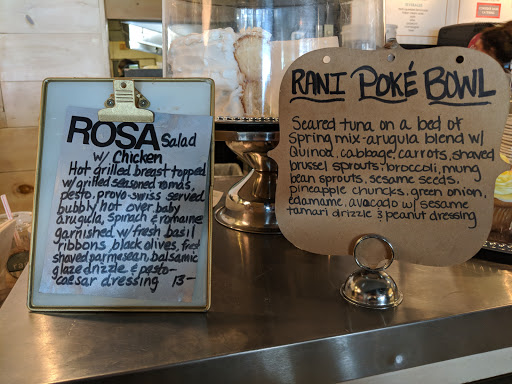 ROSA Salad
w/ Chicken
Hot grilled breast topped
w/ grilled seasoned romas,
pesto, provo-swiss served
bubbly hot over baby
arugula, spinach & romaine
garnished w/ fresh basil
ribbons, black olives, fresh
shaved parmesean, balsamic
glaze drizzle & pesto-
caesar dressing 13-
RANI POKÉ BOWL
Seared tuna on a bed of
spring mix-arugula blend w/
quinoa, cabbage, carrots, shaved
brussel sprouts, broccoli, mung
bean sprouts, sesame seeds,
pineapple chuncks, green onion,
edamame, avocado w/ sesame
tamari drizzle & peanut dressing